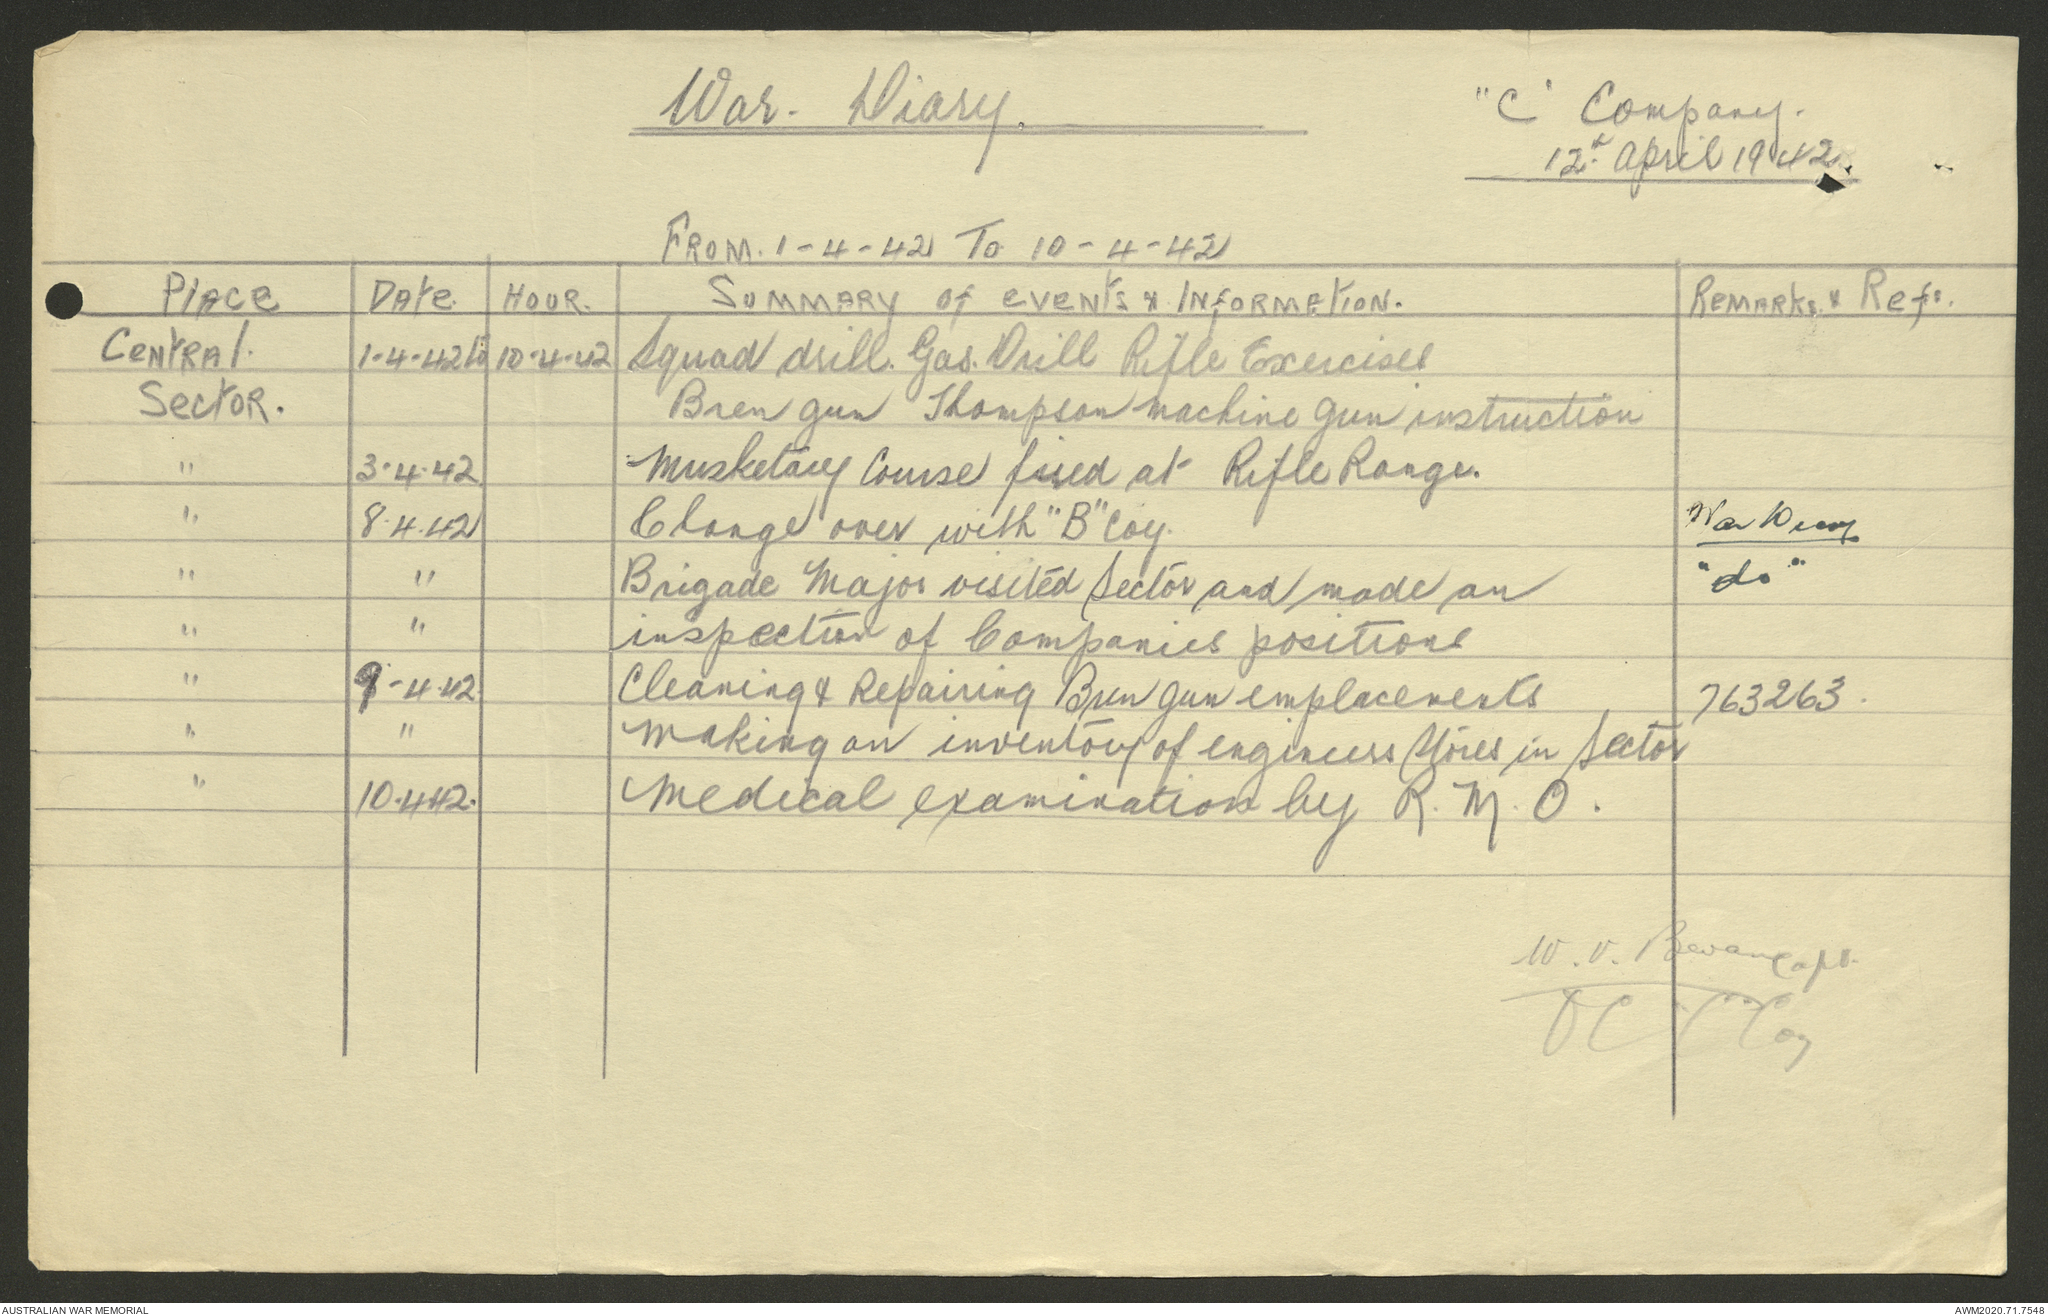 War. Diary.
"C" Company.
12th April 1942.
FROM. 1-4-42 To 10-4-42
Place Date. HOUR. SUMMARY of events & INFORMATION. REMARKS. & Refs.
Central. 1-4-42 to 10-4-42 Squad drill. Gas. Drill Rifle Exercises
Sector. Bren gun Thompson machine gun instruction
" 3-4-42 Musketary Course fired at Rifle Range.
" 8.4.42 Change over with "B" Coy. War Diary
" " Brigade Major visited Sector and made an "do"
" " inspection of Companies positions
" 9-4-42. Cleaning & Repairing Bren gun emplacements 763263.
" " Making an inventory of engineers stores in Sector
" 10.4.42. Medical examination by R.M.O.
W. V. Bevan Capt.
OC "C" Coy
AUSTRALIAN WAR MEMORIAL AWM2020.71.7548